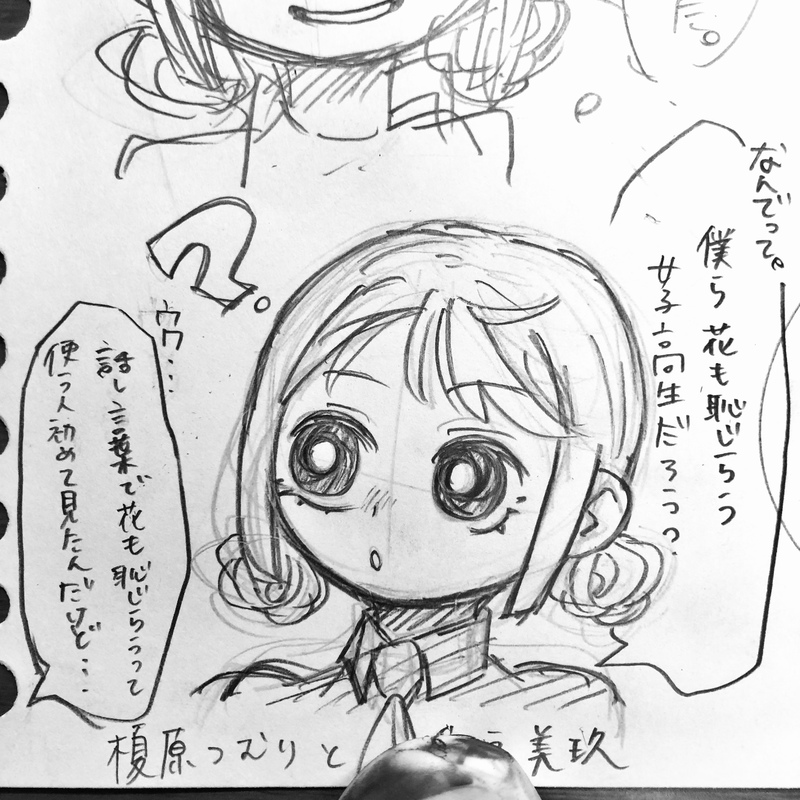 だ。
なんでって。
僕ら花も恥じらう
女子高生だろう?
?
ウワ…
話し言葉で花も恥じらうって
使う人初めて見たんだけど…
榎原つむりと
美玖